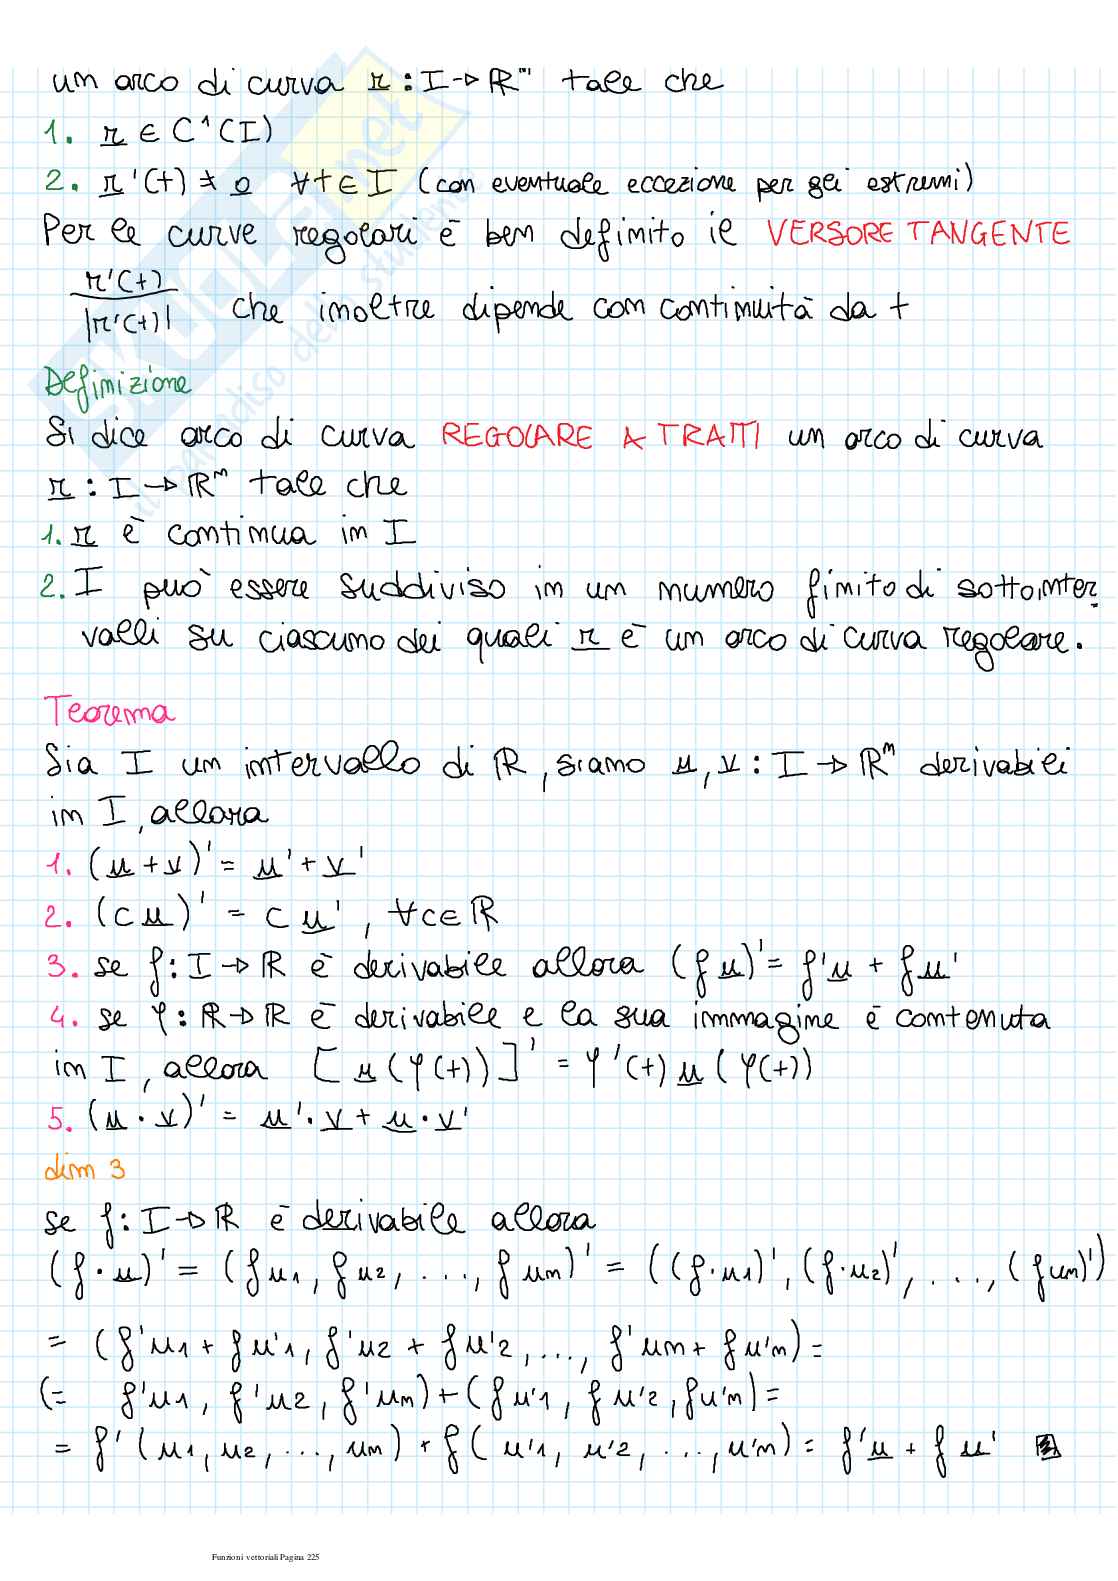 un arco di curva r : I → ℝᵐ tale che
1. r ∈ C¹(I)
2. r'(t) ≠ 0 ∀t ∈ I (con eventuale eccezione per gli estremi)
Per le curve regolari è ben definito il VERSORE TANGENTE
r'(t)/|r'(t)| che inoltre dipende con continuità da t
Definizione
Si dice arco di curva REGOLARE A TRATTI un arco di curva
r : I → ℝᵐ tale che
1. r è continua in I
2. I può essere suddiviso in un numero finito di sottointer
valli su ciascuno dei quali r è un arco di curva regolare.
Teorema
Sia I un intervallo di ℝ, siano u, v : I → ℝᵐ derivabili
in I, allora
1. (u + v)' = u' + v'
2. (c u)' = c u', ∀c ∈ ℝ
3. se f : I → ℝ è derivabile allora (f u)' = f'u + f u'
4. se φ : ℝ → ℝ è derivabile e la sua immagine è contenuta
in I, allora [u(φ(t))]' = φ'(t) u(φ(t))
5. (u · v)' = u' · v + u · v'
dim 3
se f : I → ℝ è derivabile allora
(f · u)' = (f u1, f u2, ..., f um)' = ((f · u1)', (f · u2)', ..., (f um)')
= (f'u1 + f u'1, f'u2 + f u'2, ..., f'um + f u'm) =
(= f'u1, f'u2, f'um) + (f u'1, f u'2, f u'm) =
= f'(u1, u2, ..., um) + f(u'1, u'2, ..., u'm) = f'u + f u'
Funzioni vettoriali Pagina 225